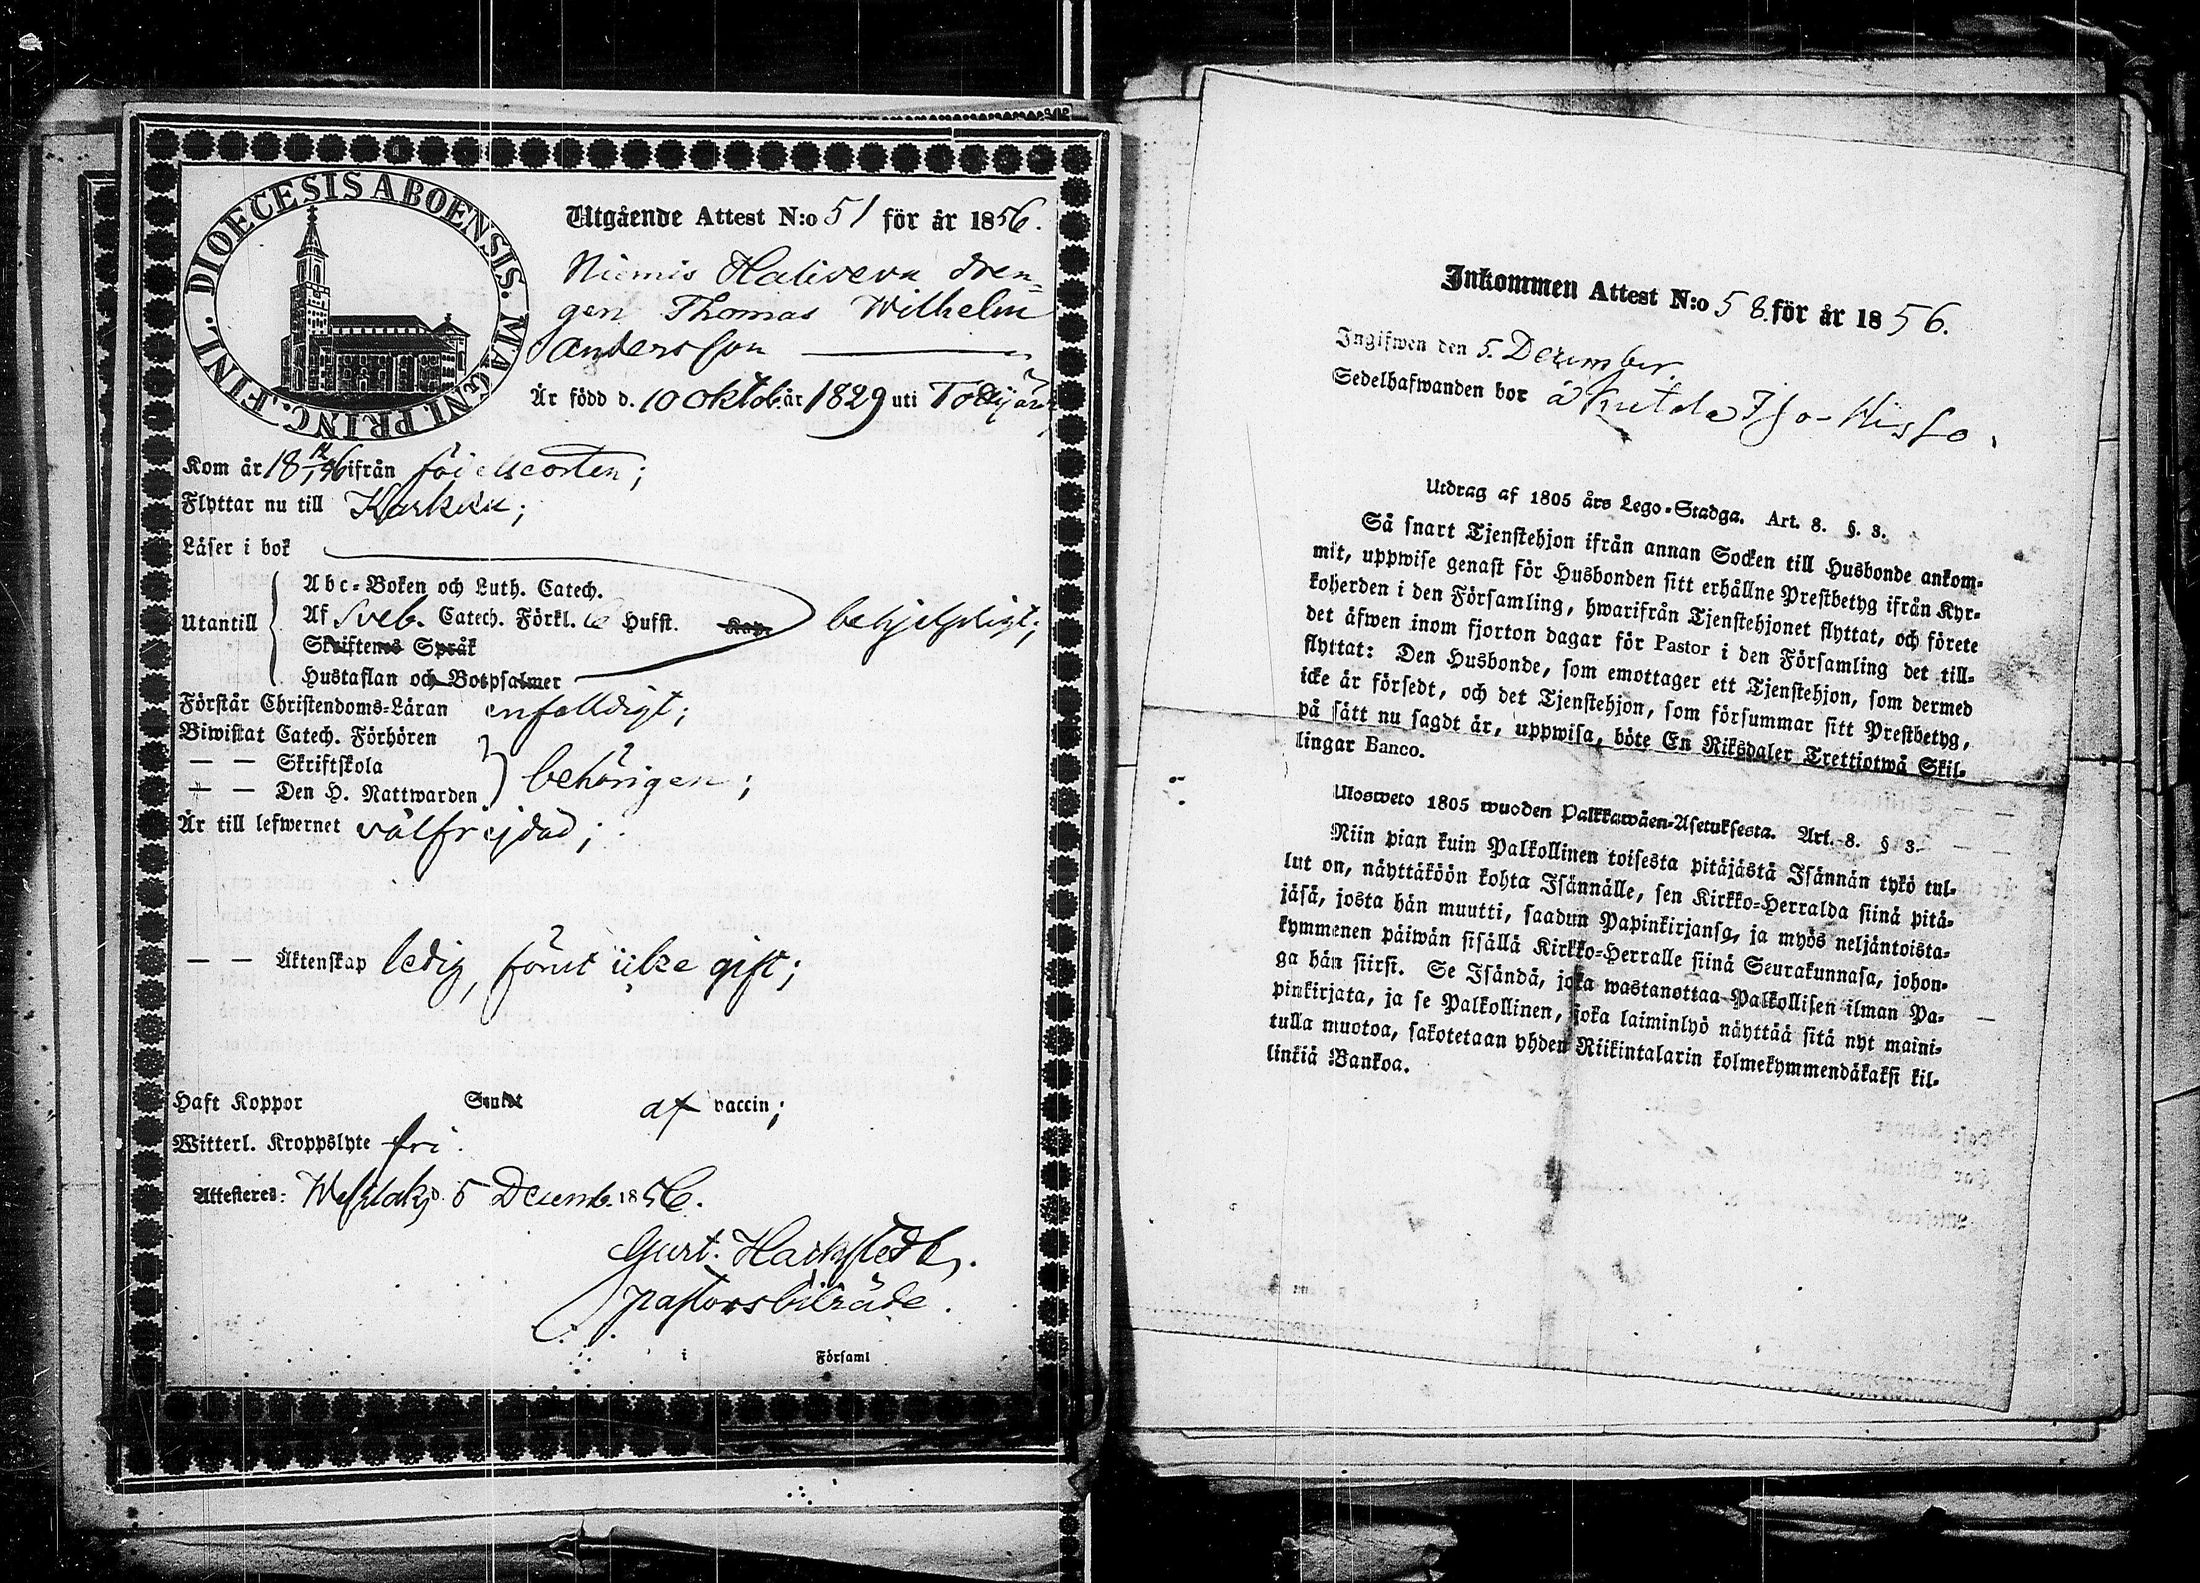 DIOECESIS ABOENSIS. MAGNI. PRINC. FINL.
Utgående Attest N:o 51 för år 1856.
Niemis Halivera dren-
gen Thomas Wilhelm
Andersson
Är född d. 10 Oktob. år 1829 uti
Kom år 18 ifrån födelseorten;
Flyttar nu till Karkku;
Läser i bok
Utantill
Abc-Boken och Luth. Catech.
Af Sveb. Catech. Förkl. Husst. Kap. behjelpligt;
Skriftenes Språk
Hustaflan och Botpsalmer
Förstår Christendoms-Läran enfalldigt;
Biwistat Catech. Förhören
— — Skriftskola
— — Den H. Nattwarden behörigen;
Är till lefwernet välfrejdad;
— — Äktenskap ledig, förut icke gift;
Haft Koppor Smitt af vaccin;
Witterl. Kroppslyte fri.
Attesteras: d. 5 Decemb. 1856.
Gust.
pastorsbiträde.
i Församl
Inkommen Attest N:o 58. för år 1856.
Ingifwen den 5. December.
Sedelhafwanden bor å
Utdrag af 1805 års Lego-Stadga. Art. 8. §. 3.
Så snart Tjenstehjon ifrån annan Socken till Husbonde ankom-
mit, uppwise genast för Husbonden sitt erhållne Prestbetyg ifrån Kyr-
koherden i den Församling, hwarifrån Tjenstehjonet flyttat, och förete
det äfwen inom fjorton dagar för Pastor i den Församling det till-
flyttat: Den Husbonde, som emottager ett Tjenstehjon, som dermed
icke är försedt, och det Tjenstehjon, som försummar sitt Prestbetyg,
på sätt nu sagdt är, uppwisa, böte En Riksdaler Trettiotwå Skil-
lingar Banco.
Ulosweto 1805 wuoden Palkkawäen-Asetuksesta. Art. 8. § 3.
Niin pian kuin Palkollinen toisesta pitäjästä Isännän tykö tul-
lut on, näyttäköön kohta Isännälle, sen Kirkko-Herralda siinä pitä-
jäsä, josta hän muutti, saadun Papinkirjansa, ja myös neljäntoista-
kymmenen päiwän sisällä Kirkko-Herralle siinä Seurakunnasa, johon-
ga hän siirsi. Se Isändä, joka wastanottaa Palkollisen ilman Pa-
pinkirjata, ja se Palkollinen, joka laiminlyö näyttää sitä nyt maini-
tulla muotoa, sakotetaan yhden Riikintalarin kolmekymmendäkaksi kil-
linkiä Bankoa.